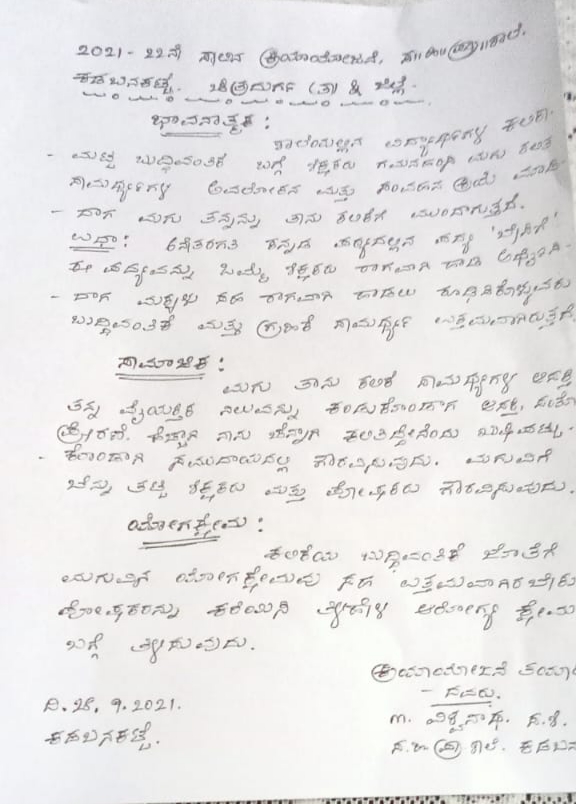 2021-22ನೇ ಸಾಲಿನ ಕ್ರಿಯಾಯೋಜನೆ, ಸ||ಹಿ||ಪ್ರಾ||ಶಾಲೆ.
ಕಡಬನಕಟ್ಟೆ. ಚಿತ್ರದುರ್ಗ (ತಾ) & ಜಿಲ್ಲೆ.
ಭಾವನಾತ್ಮಕ :
ಶಾಲೆಯಲ್ಲಿನ ವಿದ್ಯಾರ್ಥಿಗಳ ಕಲಿಕಾ-
- ಮಟ್ಟ ಬುದ್ಧಿವಂತಿಕೆ ಬಗ್ಗೆ ಶಿಕ್ಷಕರು ಮಗು ಕಲಿತ
ಸಾಮರ್ಥ್ಯಗಳ ಅವಲೋಕನ ಮತ್ತು ಸಂವಹನ ಕ್ರಿಯೆ ಮಾಡಿ-
- ದಾಗ ಮಗು ತನ್ನನ್ನು ತಾನು ಕಲಿಕೆಗೆ ಮುಂದಾಗುತ್ತದೆ.
ಉದಾ: 6ನೇತರಗತಿ ಕನ್ನಡ ಪಠ್ಯದಲ್ಲಿನ ಪದ್ಯ
ಈ ಪದ್ಯವನ್ನು ಒಮ್ಮೆ ಶಿಕ್ಷಕರು ರಾಗವಾಗಿ ಹಾಡಿ
- ದಾಗ ಮಕ್ಕಳು ಸಹ ರಾಗವಾಗಿ ಹಾಡಲು
ಬುದ್ಧಿವಂತಿಕೆ ಮತ್ತು ಗ್ರಹಿಕೆ ಸಾಮರ್ಥ್ಯ ಉತ್ತಮವಾಗಿರುತ್ತದೆ.
ಸಾಮಾಜಿಕ :
ಮಗು ತಾನು ಕಲಿಕೆ ಸಾಮರ್ಥ್ಯಗಳ ಆಸಕ್ತಿ
ತನ್ನ ವೈಯಕ್ತಿಕ ನಿಲುವನ್ನು ಕಂಡುಕೊಂಡಾಗ ಆಸಕ್ತಿ,
ಪ್ರೇರಣೆ. ಹೆಚ್ಚಾಗಿ ನಾನು ಚೆನ್ನಾಗಿ ಕಲಿತಿದ್ದೇನೆಂದು ಖುಷಿಪಟ್ಟು-
- ಕೊಂಡಾಗ ಸಮುದಾಯದಲ್ಲಿ ಗೌರವಿಸುವುದು. ಮಗುವಿಗೆ
ಬೆನ್ನು ತಟ್ಟಿ ಶಿಕ್ಷಕರು ಮತ್ತು ಪೋಷಕರು ಗೌರವಿಸುವುದು.
ಯೋಗಕ್ಷೇಮ :
ಕಲಿಕೆಯ ಬುದ್ಧಿವಂತಿಕೆ ಜೊತೆಗೆ
ಮಗುವಿನ ಯೋಗಕ್ಷೇಮವು ಸಹ ಉತ್ತಮವಾಗಿರಬೇಕು
ಪೋಷಕರನ್ನು ಕರೆಯಿಸಿ ಆರೋಗ್ಯ ಕ್ಷೇಮ
ಬಗ್ಗೆ ತಿಳಿಸುವುದು.
ಕ್ರಿಯಾಯೋಜನೆ ತಯಾರಿ
- ದವರು.
ದಿ. 9. 2021.
ಕಡಬನಕಟ್ಟೆ.
m. ವಿಶ್ವನಾಥ. ಸ.ಶಿ.
ಸ.ಹಿ.ಪ್ರಾ.ಶಾಲೆ. ಕಡಬನ